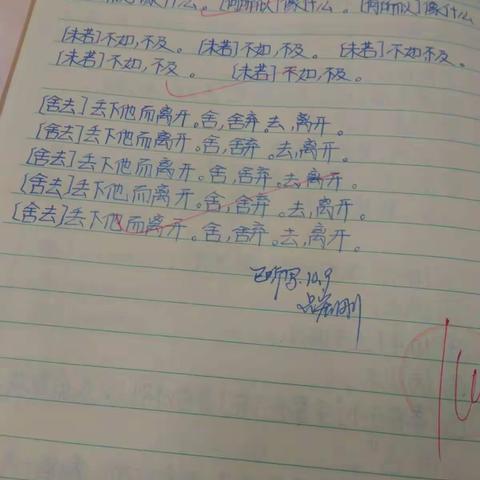 做什么。[何所以]做什么。[何所以]做什么
[未若]不如,不及。[未若]不如,不及。[未若]不如不及。
[未若]不如,不及。[未若]不如,不及。
[舍去]丢下他而离开。舍,舍弃。去,离开。
[舍去]丢下他而离开。舍,舍弃。去,离开。
[舍去]丢下他而离开。舍,舍弃。去,离开。
[舍去]丢下他而离开。舍,舍弃。去,离开。
[舍去]丢下他而离开。舍,舍弃。去,离开。
已听写.10.9